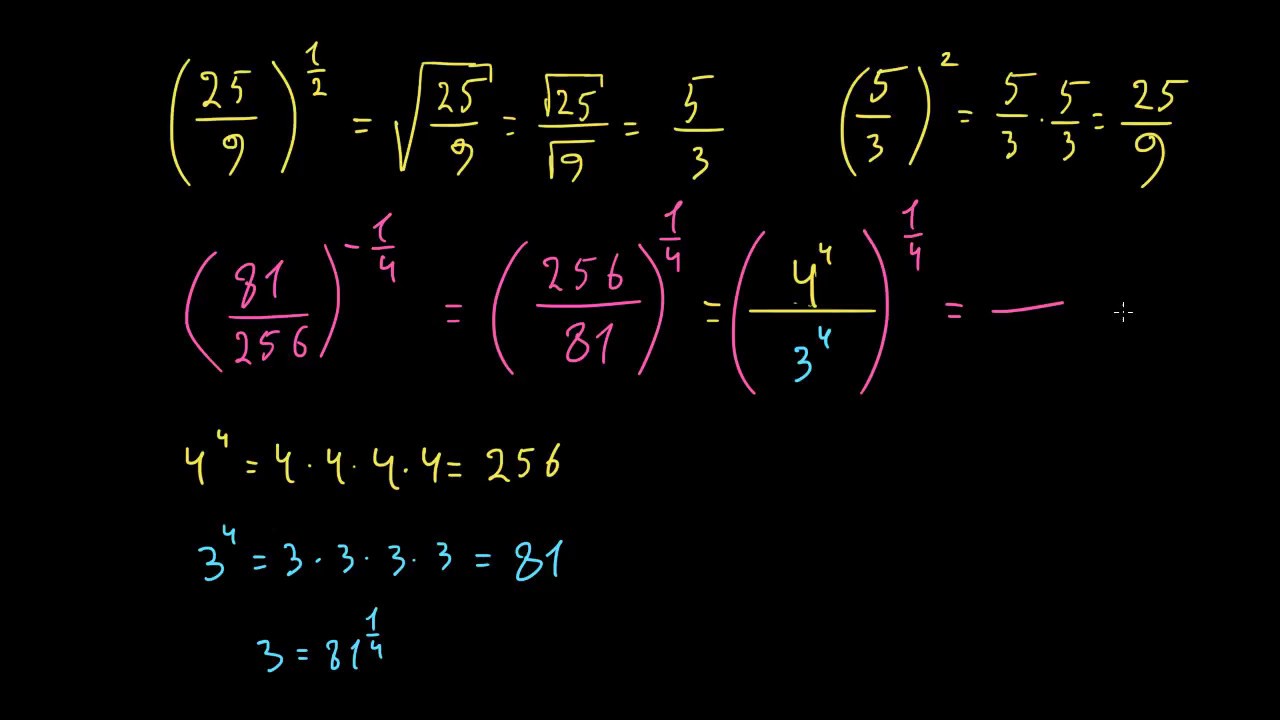 (25/9)^(1/2) = √(25/9) = √25/√9 = 5/3    (5/3)^2 = 5/3 · 5/3 = 25/9
(81/256)^(-1/4) = (256/81)^(1/4) = (4^4/3^4)^(1/4) = —
4^4 = 4 · 4 · 4 · 4 = 256
3^4 = 3 · 3 · 3 · 3 = 81
3 = 81^(1/4)